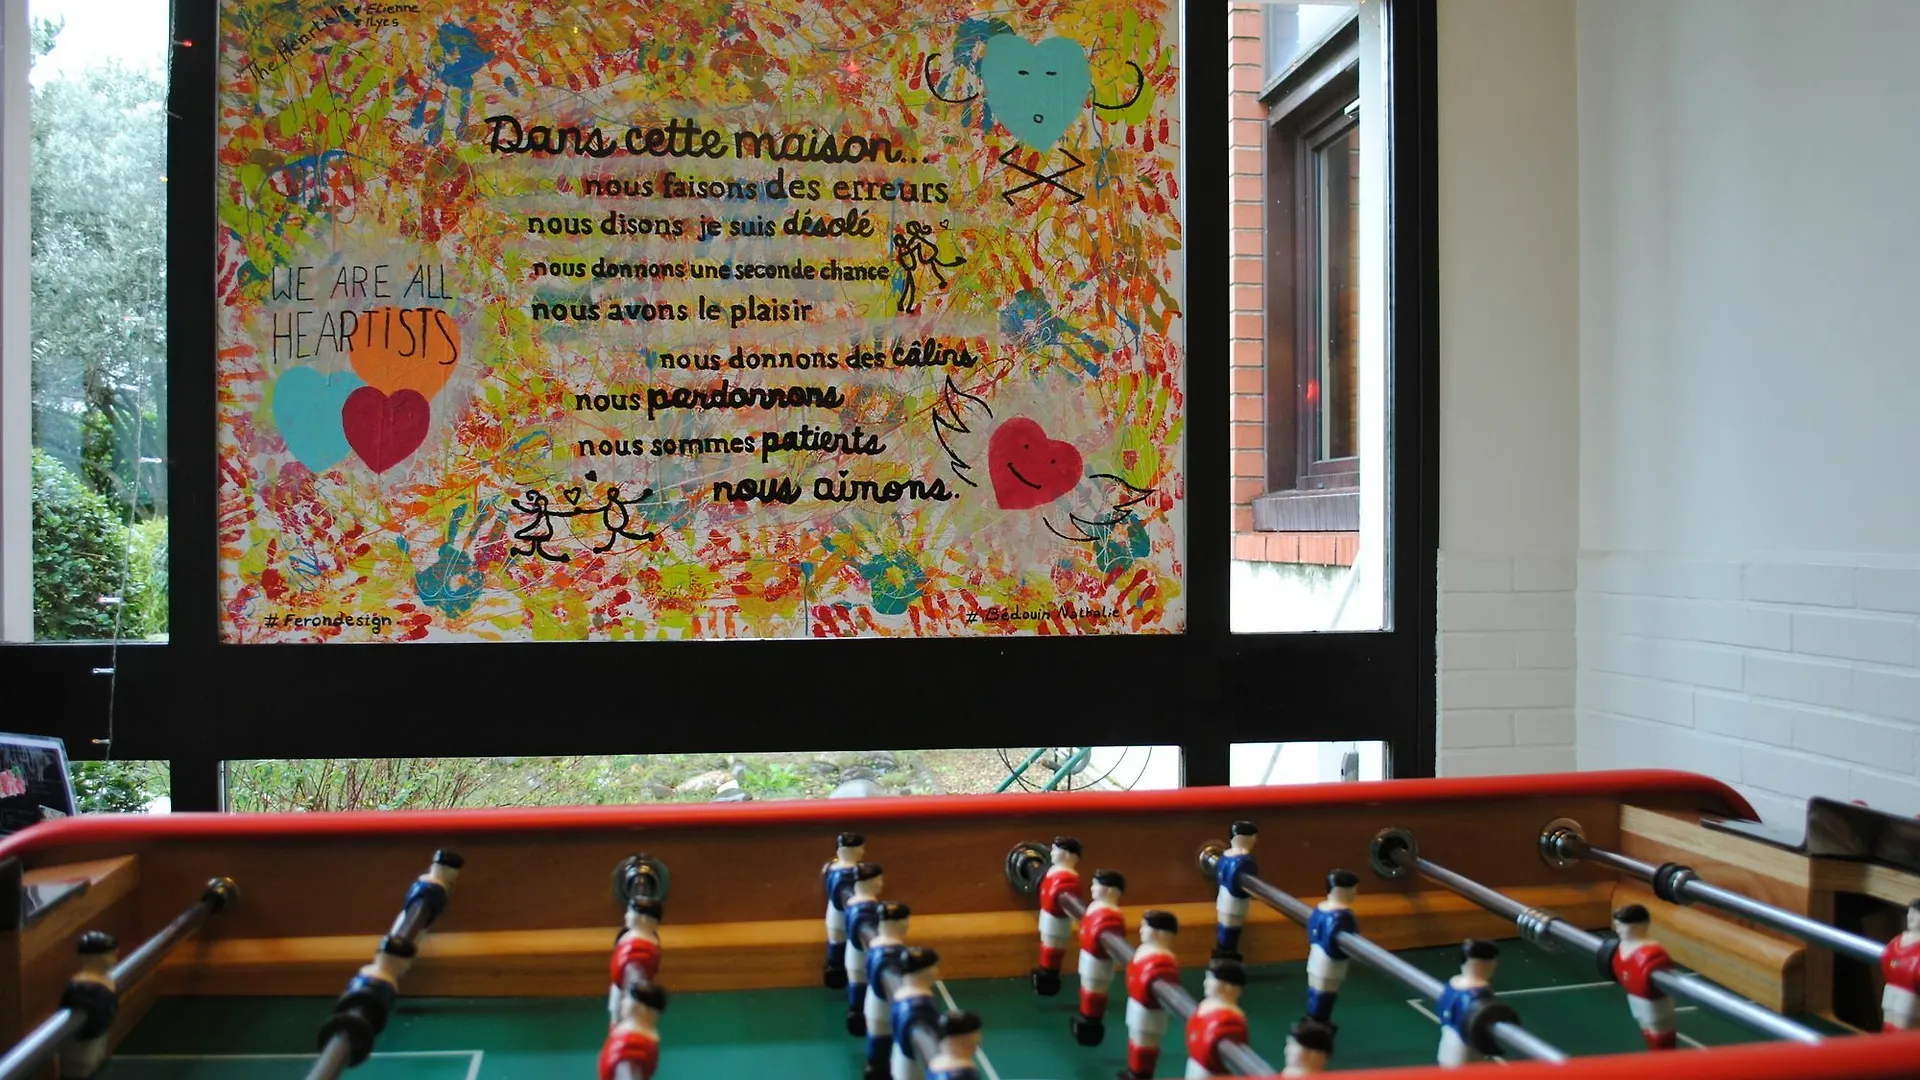 The Heartists # Etienne
# Ilyes
Dans cette maison...
nous faisons des erreurs
nous disons je suis désolé
nous donnons une seconde chance
nous avons le plaisir
nous donnons des câlins
nous pardonnons
nous sommes patients
nous aimons.
WE ARE ALL
HEARTISTS
# Ferondesign
# Bédouin Nathalie